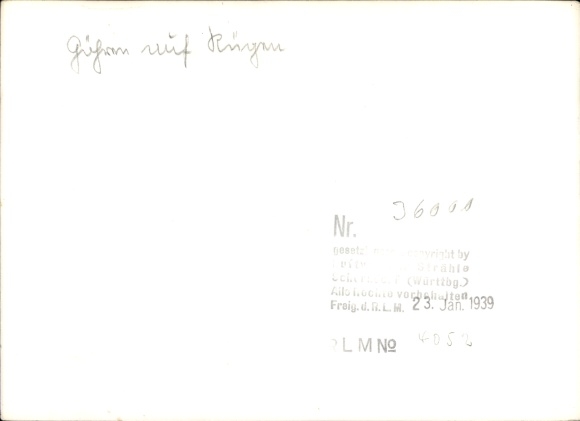 Göhren auf Rügen
Nr. 36001
gesetzl. Copyright by
Strähle
(Württbg.)
Alle Rechte vorbehalten
Freig. d. R.L.M. 23. Jan. 1939
L M No 4052